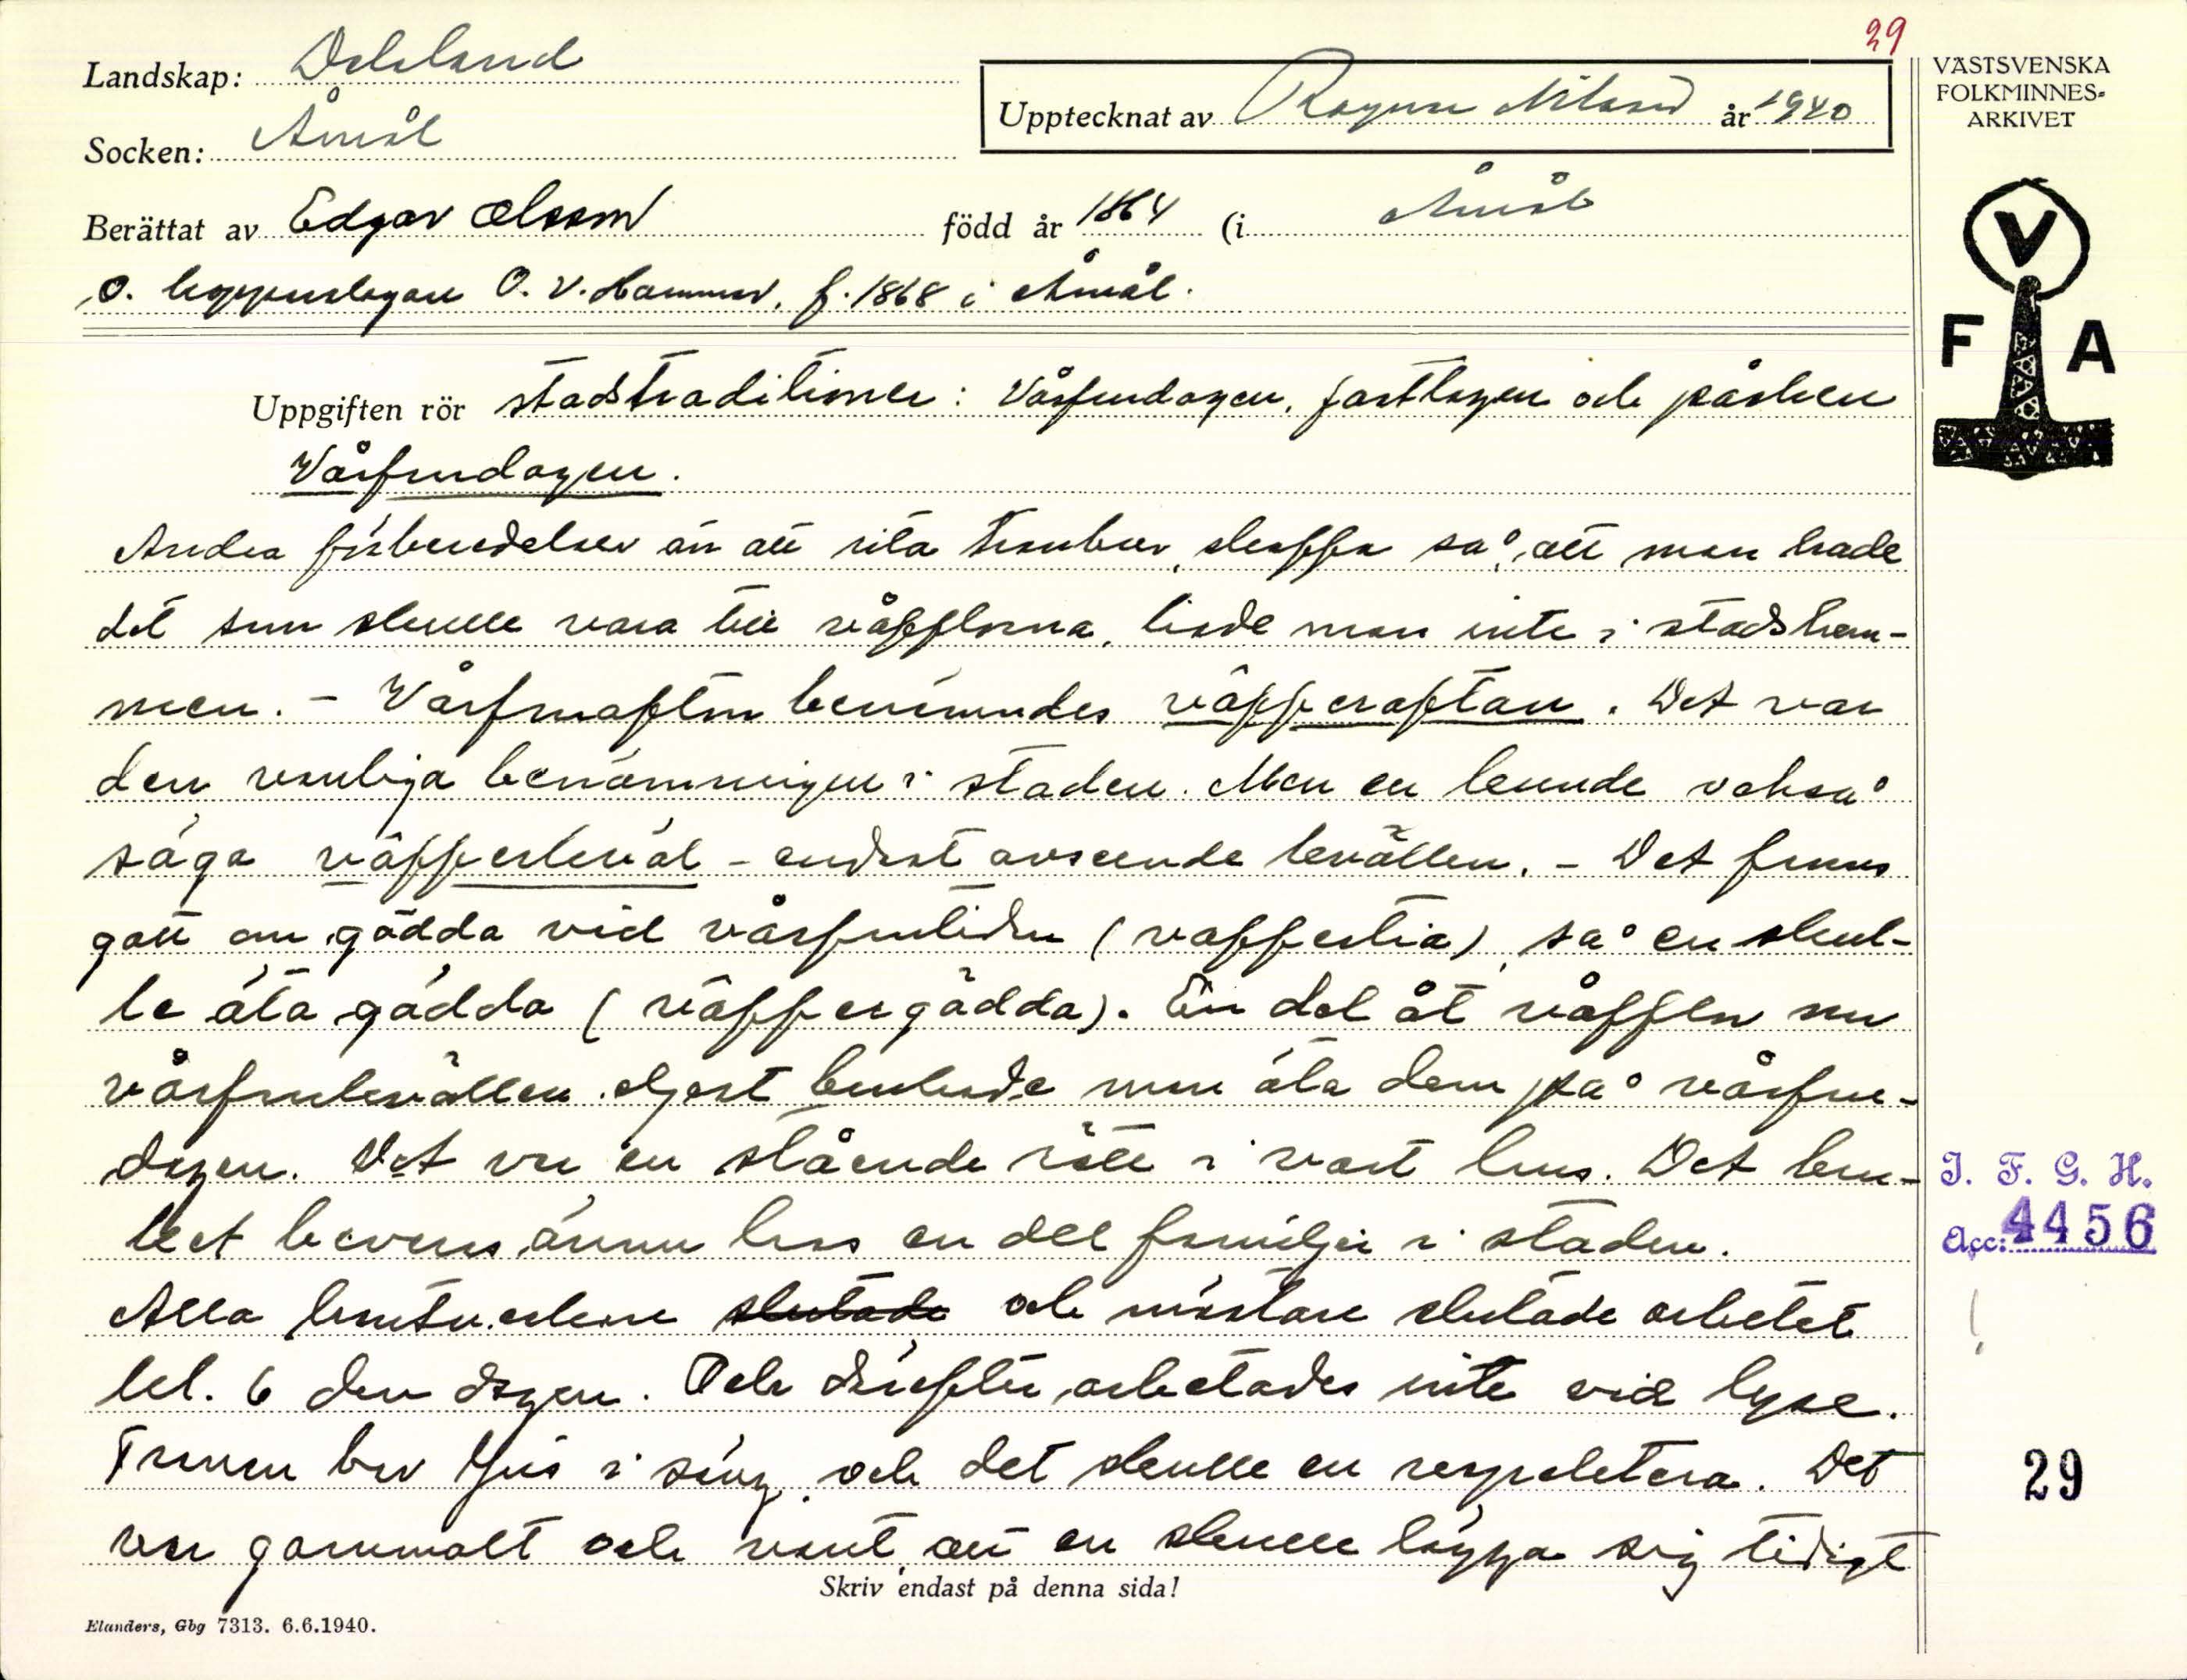 29
Landskap: Dalsland
Socken: Åmål
Upptecknat av Ragnar Nilsson år 1940
VÄSTSVENSKA
FOLKMINNES-
ARKIVET
V
F A
Berättat av Edgar Olsson född år 1864 (i Åmål
o. kopparslagare O. V. Hammar, f. 1868 i Åmål.
Uppgiften rör stadstraditioner: Vårfrudagen, fastlagen och påsken
Vårfrudagen.
Andra förberedelser än att rita tranben, skaffa så, att man hade
det som skulle vara till våfflorna, hade man inte i stadshem-
men. – Vårfruafton benämndes väffferaftan. Det var
den vanliga benämningen i staden. Men en kunde också
säga väffferkväll – endast avseende kvällen. – Det fanns
gott om gädda vid vårfrutiden (vaffertia), så en skul-
le äta gädda (väffergädda). En del åt våfflor om
vårfrukvällen. Mest brukade man äta dem på vårfru-
dagen. Det var en stående rätt i vart hus. Det bru-
ket bevaras ännu hos en del familjer i staden.
Alla hantverkare slutade och mästare slutade arbetet
kl. 6 den dagen. Och därefter arbetades inte vid lyse.
Tranan bar ljus i säng, och det skulle en respektera. Det
var gammalt och vant, att en skulle lägga sig tidigt
Skriv endast på denna sida!
Elanders, Gbg 7313. 6.6.1940.
I. F. G. H.
Acc: 4456
29